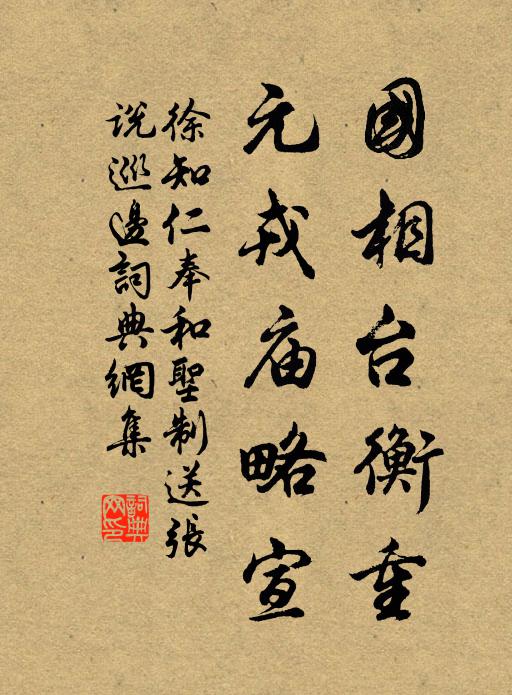 國相台衡重
元戎庙略宣
徐知仁奉和聖制送張
说巡邊詞典網集
詞典网印